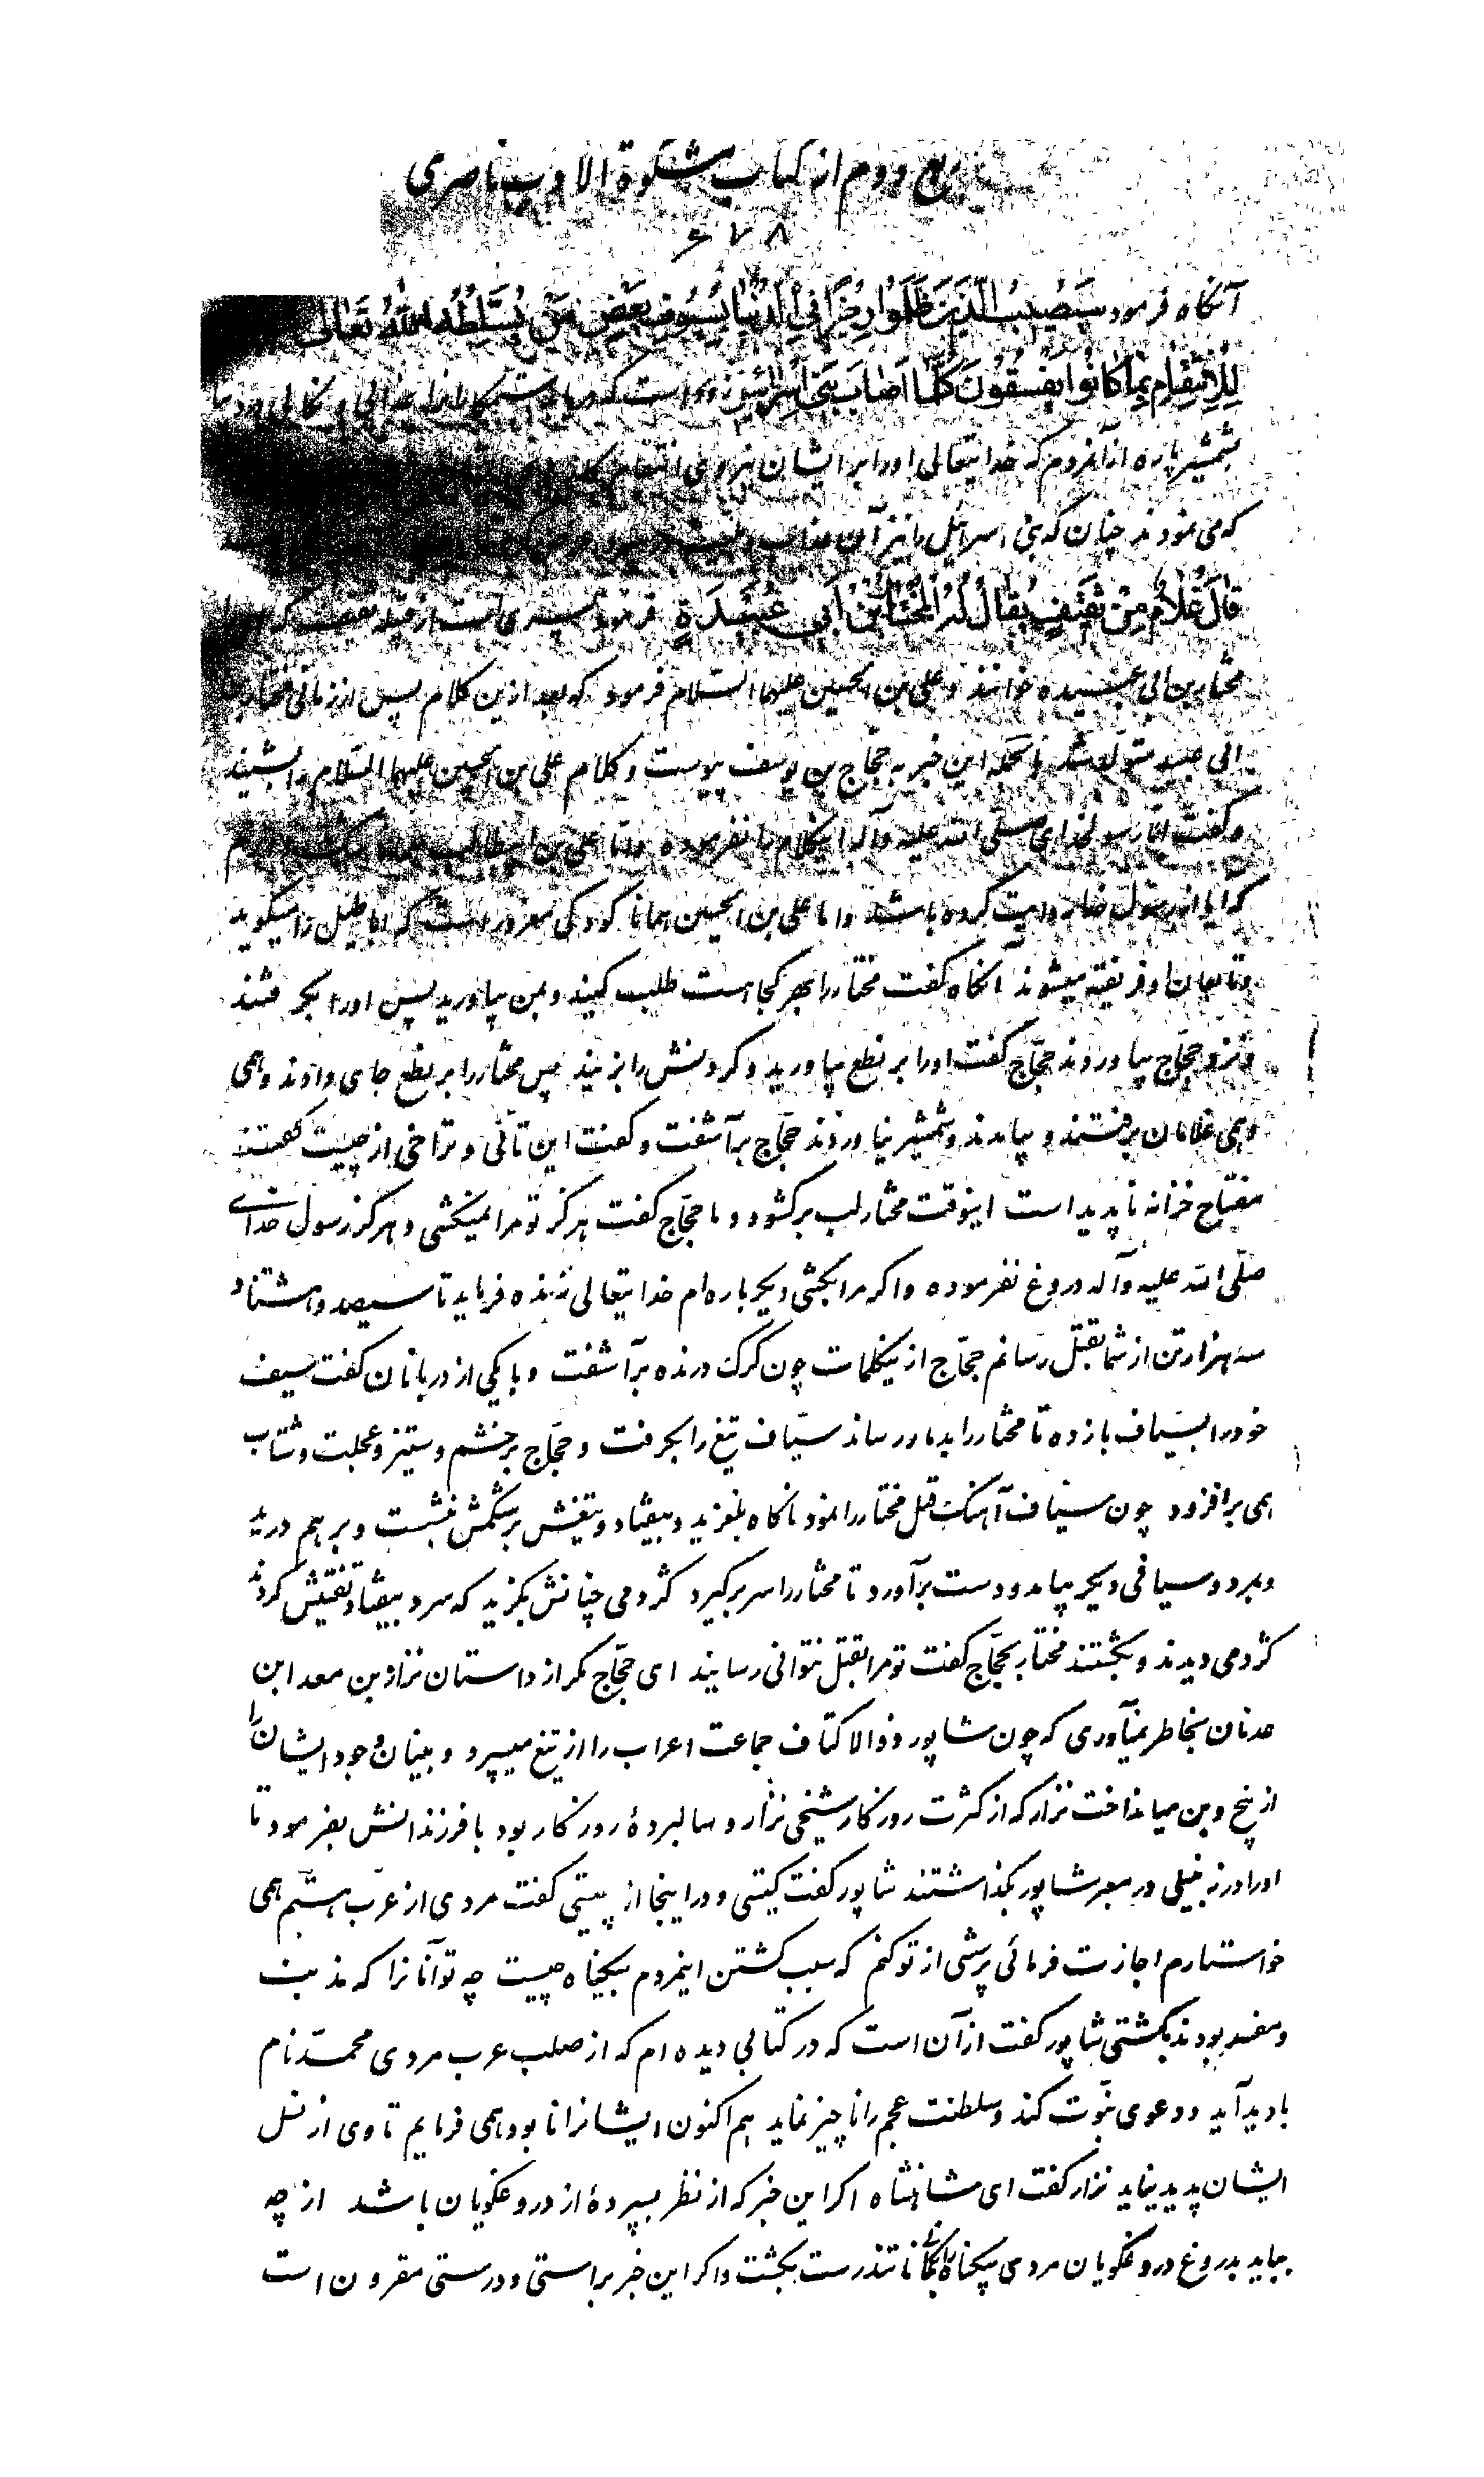 ربع دوم از کتاب مشکوة الادب ناصری
۶۷۸
آنکاه فرمود سَیُصیبُ الَّذینَ ظَلَمُوا رِجْزًا فِی الدُّنْیا بِسُیُوفِ بَعْضِ مَنْ یُسَلِّطُهُ اللّٰهُ تَعالی
لِلْاِنْتِقامِ بِما کانُوا یَفْسُقُونَ کَما اَصابَ بَنی اِسْرائیلَ زود است که
بشمشیر پاره از آنمردم که خدایتعالی او را بر ایشان از روی انتقام
که می نمودند چنان که بنی اسرائیل را نیز آن عذاب
قالَ غُلامٌ مِنْ ثَقیفٍ یُقالُ لَهُ الْمُخْتارُ بْنُ اَبی عُبَیْدَةٍ فرمود پسری است از قبیله ثقیف که
مختار بن ابی عبیده خوانند و علی بن الحسین علیهما السّلام فرمود که بعد ازین کلام پس از زمانی مختار بن
ابی عبید متولد شد بالجمله این خبر به حجّاج بن یوسف پیوست و کلام علی بن الحسین علیهما السّلام را بشنید
و کفت امّا رسولخدای صلی الله علیه وآله اینکلام را نفرموده و امّا علی بن ابیطالب
که آیا از رسول خدا روایت کرده باشد و اما علی بن الحسین همانا کودکی مغرور است که اباطیل را میکوید
و تابعان او فریفته میشوند آنکاه کفت مختار را بهر کجا است طلب کنید و بمن بیاورید پس او را بکرفتند
و نزد حجّاج بیاوردند حجّاج کفت او را بر نطع بیاورید و کردنش را بزنید پس مختار را بر نطع جای دادند و همی
و همی غلامان برفتند و بیامدند و شمشیر نیاوردند حجّاج برآشفت و کفت این تأنّی و تراخی از چیست کفتند
مفتاح خزانه ناپدید است اینوقت مختار لب برکشود و با حجّاج کفت هرکز تو مرا نمیکشی و هرکز رسول خدای
صلّی الله علیه وآله دروغ نفرموده و اکر مرا بکشی دیکر باره ام خدایتعالی زنده فرماید تا سیصد و هشتاد
سه هزار تن از شما بقتل رسانم حجّاج ازینکلمات چون کرک درنده برآشفت و با یکی از دربانان کفت سیف
خود را بسیّاف بازده تا مختار را بدمار رساند سیّاف تیغ را بکرفت و حجّاج بر خشم و ستیز و عجلت و شتاب
همی برافزود چون سیّاف آهنک قتل مختار را نمود ناکاه بلغزید و بیفتاد و تیغش بر شکمش نشست و بر هم درید
و بمرد و سیافی دیکر بیامد و دست برآورد تا مختار را سر برکیرد کژدمی چنانش بکزید که سرد بیفتاد تفتیش کردند
کژدمی دیدند و بکشتند مختار بحجّاج کفت تو مرا بقتل نتوانی رسانید ای حجّاج مکر از داستان نزار بن معد ابن
عدنان بخاطر نمیآوری که چون شاپور ذوالاکتاف جماعت اعراب را از تیغ میسپرد و بنیان وجود ایشان را
از بیخ و بن میانداخت نزار که از کثرت روزکار شیخی نزار و سالبردهٔ روزکار بود با فرزندانش بفرمود تا
او را در زنبیلی در معبر شاپور بکذاشتند شاپور کفت کیستی و در اینجا از چیستی کفت مردی از عرب هستم همی
خواستارم اجازت فرمائی پرسشی از تو کنم که سبب کشتن اینمردم بیکناه چیست چه تو آنانرا که مذنب
و مفسد بودند بکشتی شاپور کفت از آن است که در کتابی دیده ام که از صلب عرب مردی محمّد نام
بادید آید و دعوی نبّوت کند و سلطنت عجم را ناچیز نماید هم اکنون ایشانرا نابود همی فرمایم تا وی از نسل
ایشان پدید نیاید نزار کفت ای شاهنشاه اکر این خبر که از نظر بسپردهٔ از دروغکویان باشد از چه
بباید بدروغ دروغکویان مردمی بیکناه را تندرست بکشت و اکر این خبر براستی و درستی مقرون است